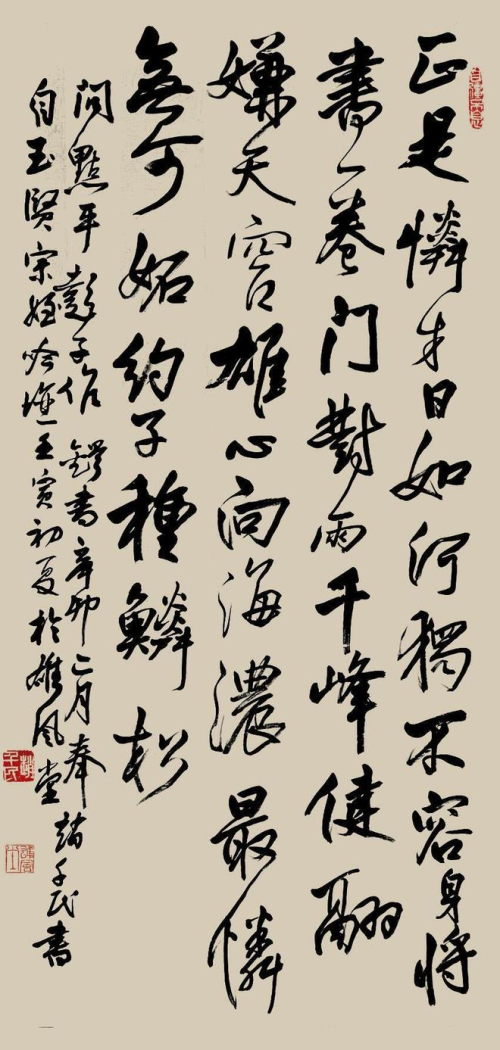 正是憐才日如何獨不容身將
書一卷門對雨千峰健翮
嫌天窄雄心向海濃最憐
無可妬約子種鱗松
問點平彭子作 書辛卯二月奉
玉賢宗姪吟壇壬寅初夏於雄風堂趙千民書